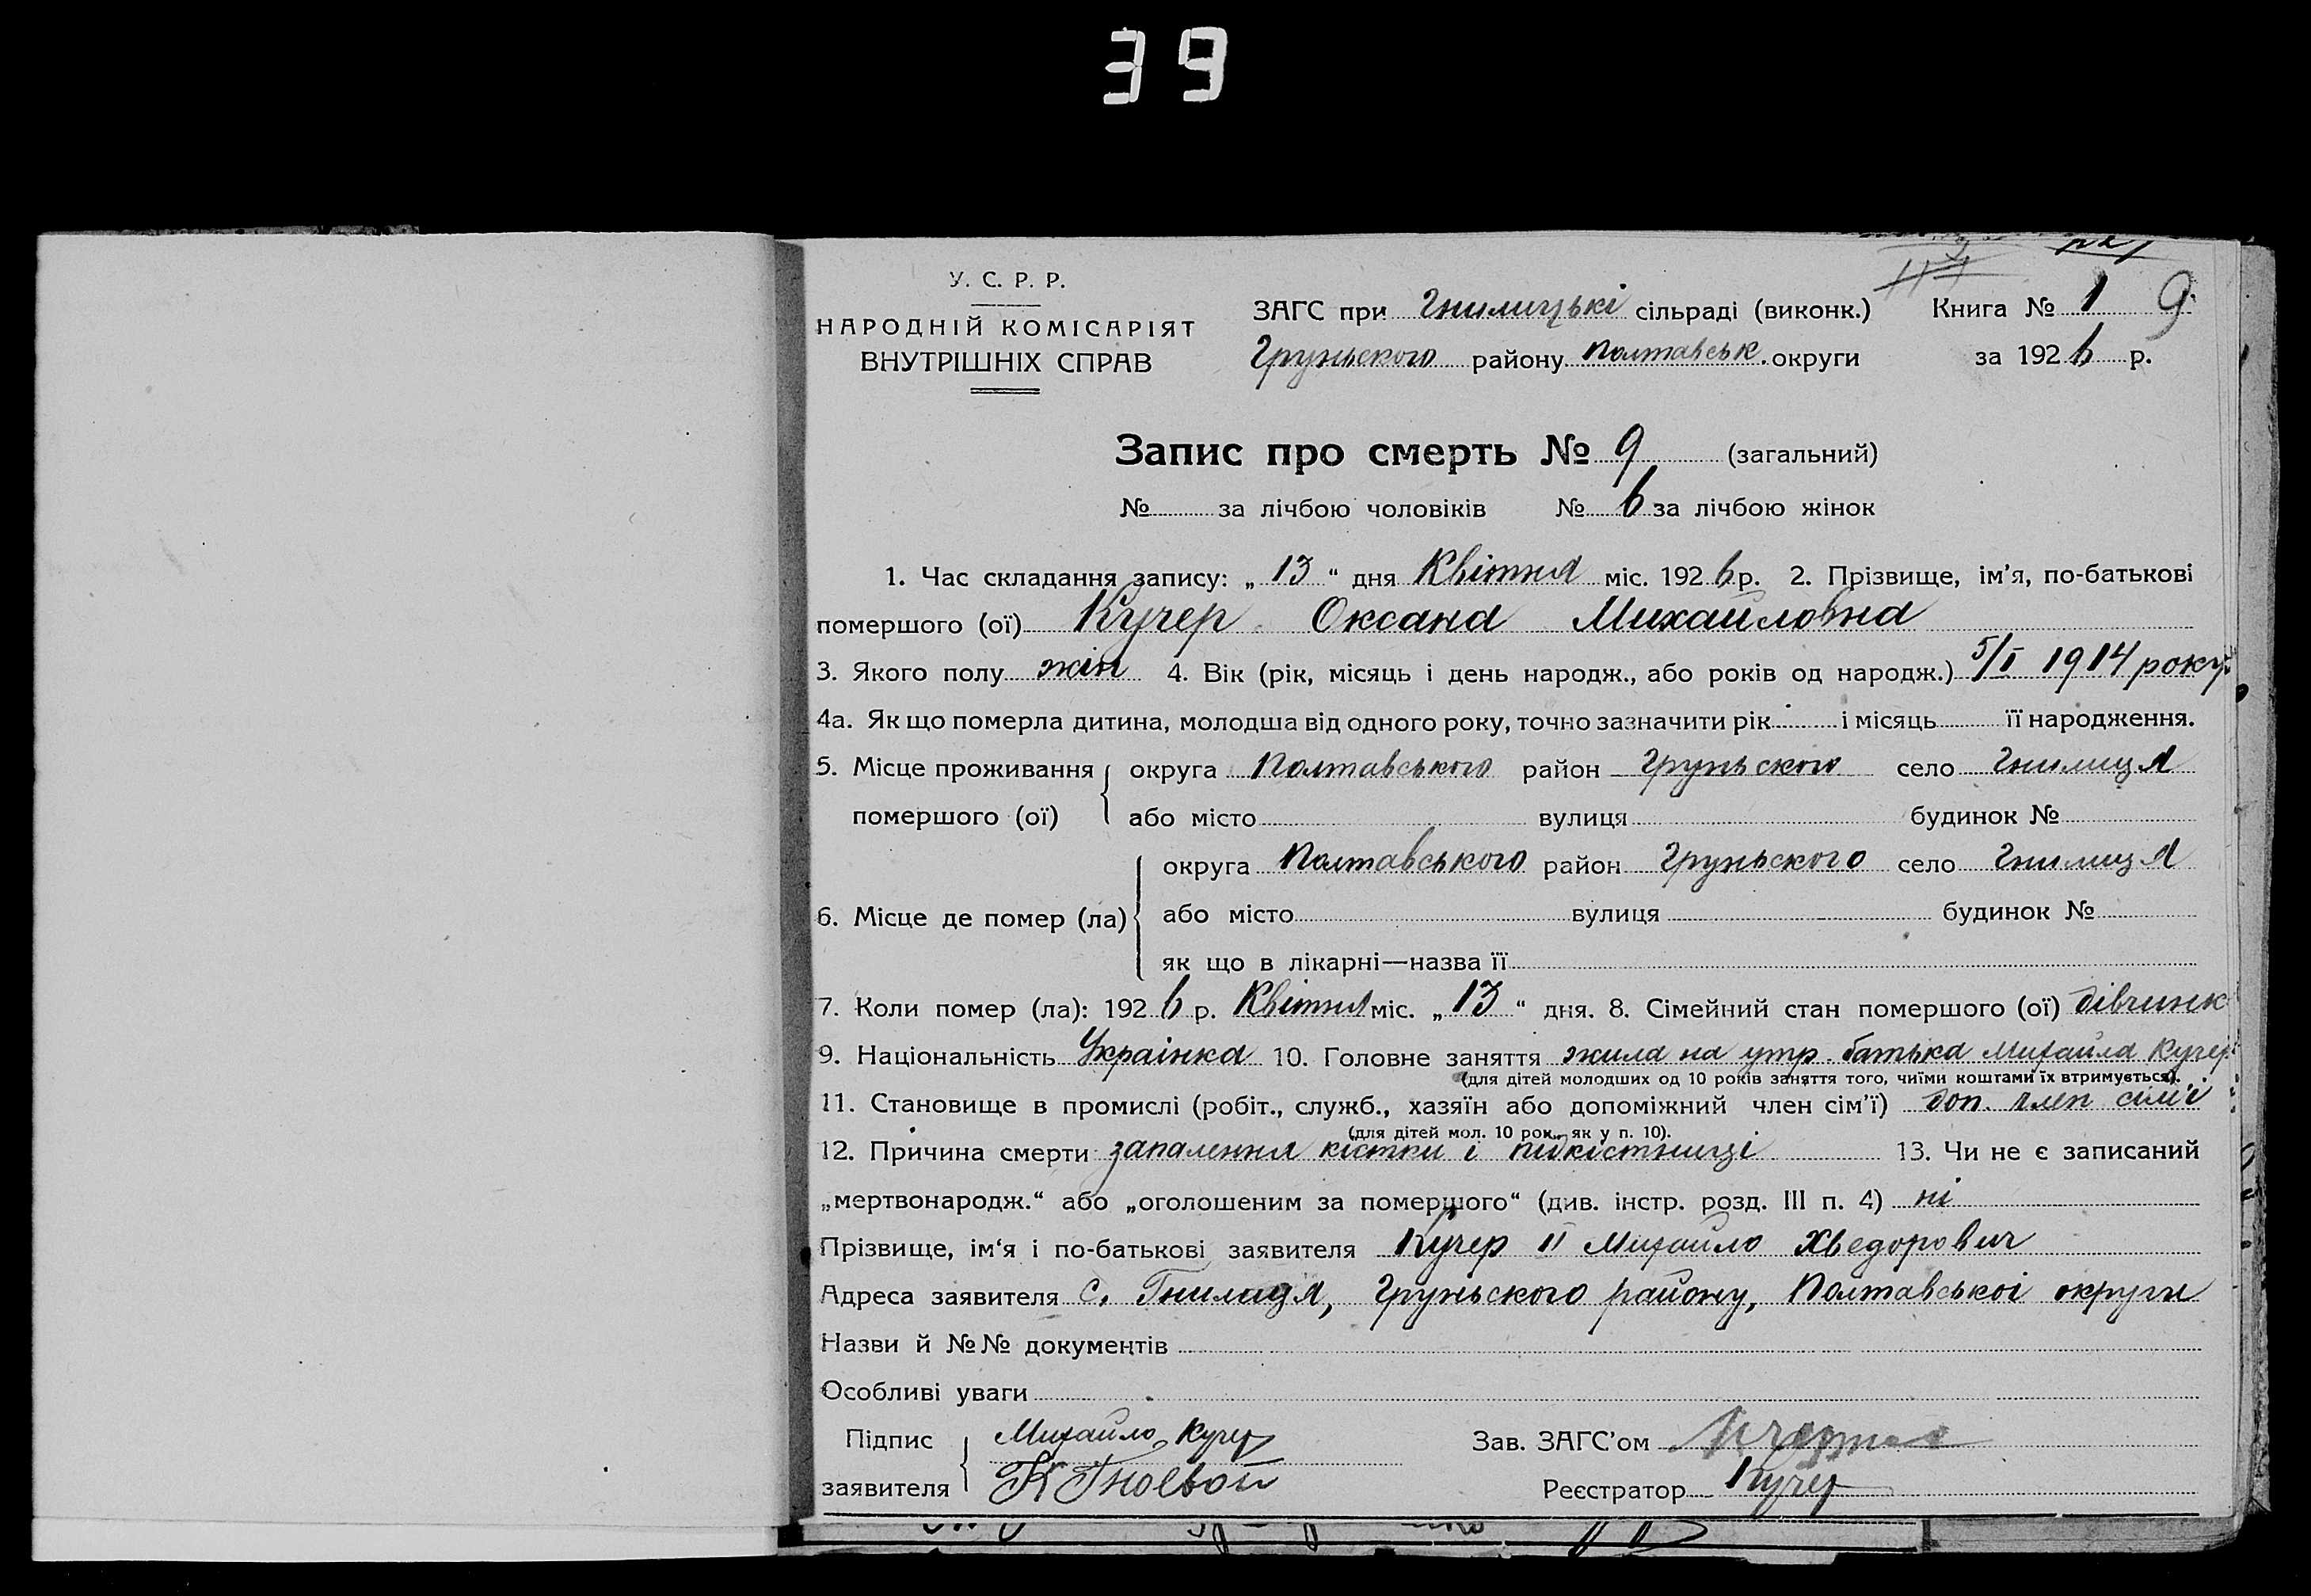 39
У. С. Р. Р.
НАРОДНІЙ КОМІСАРІЯТ
ВНУТРІШНІХ СПРАВ
ЗАГС при Гнилицькі сільраді (виконк.) Книга № 1 9
Груньского району Полтавськ. округи за 1926 р.
Запис про смерть № 9 (загальний)
№ за лічбою чоловіків № 6 за лічбою жінок
1. Час складання запису: „13“ дня Квітня міс. 1926 р. 2. Прізвище, ім’я, по-батькові
помершого (ої) Кучер Оксана Михайловна
3. Якого полу жін 4. Вік (рік, місяць і день народж., або років од народж.) 5/I 1914 року
4а. Як що померла дитина, молодша від одного року, точно зазначити рік і місяць її народження.
5. Місце проживання округа Полтавського район Груньского село Гнилиця
помершого (ої) або місто вулиця будинок №
округа Полтавського район Груньского село Гнилиця
6. Місце де помер (ла) або місто вулиця будинок №
як що в лікарні—назва її
7. Коли помер (ла): 1926 р. Квітня міс. „13“ дня. 8. Сімейний стан помершого (ої) дівчинк
9. Національність Украінка 10. Головне заняття жила на утр. батька Михайла Кучер
(для дітей молодших од 10 років заняття того, чиїми коштами їх втримується).
11. Становище в промислі (робіт., служб., хазяїн або допоміжний член сім’ї) доп. член сім'і
(для дітей мол. 10 рок., як у п. 10).
12. Причина смерти запалення кістки і підкістниці 13. Чи не є записаний
„мертвонародж.“ або „оголошеним за помершого“ (див. інстр. розд. III п. 4) ні
Прізвище, ім‘я і по-батькові заявителя Кучер II Михайло Хведорович
Адреса заявителя с. Гнилиця, Груньского району, Полтавськоі округи
Назви й №№ документів
Особливі уваги
Підпис Михайло Кучер Зав. ЗАГС’ом
заявителя К Гноевой Реєстратор Кучер